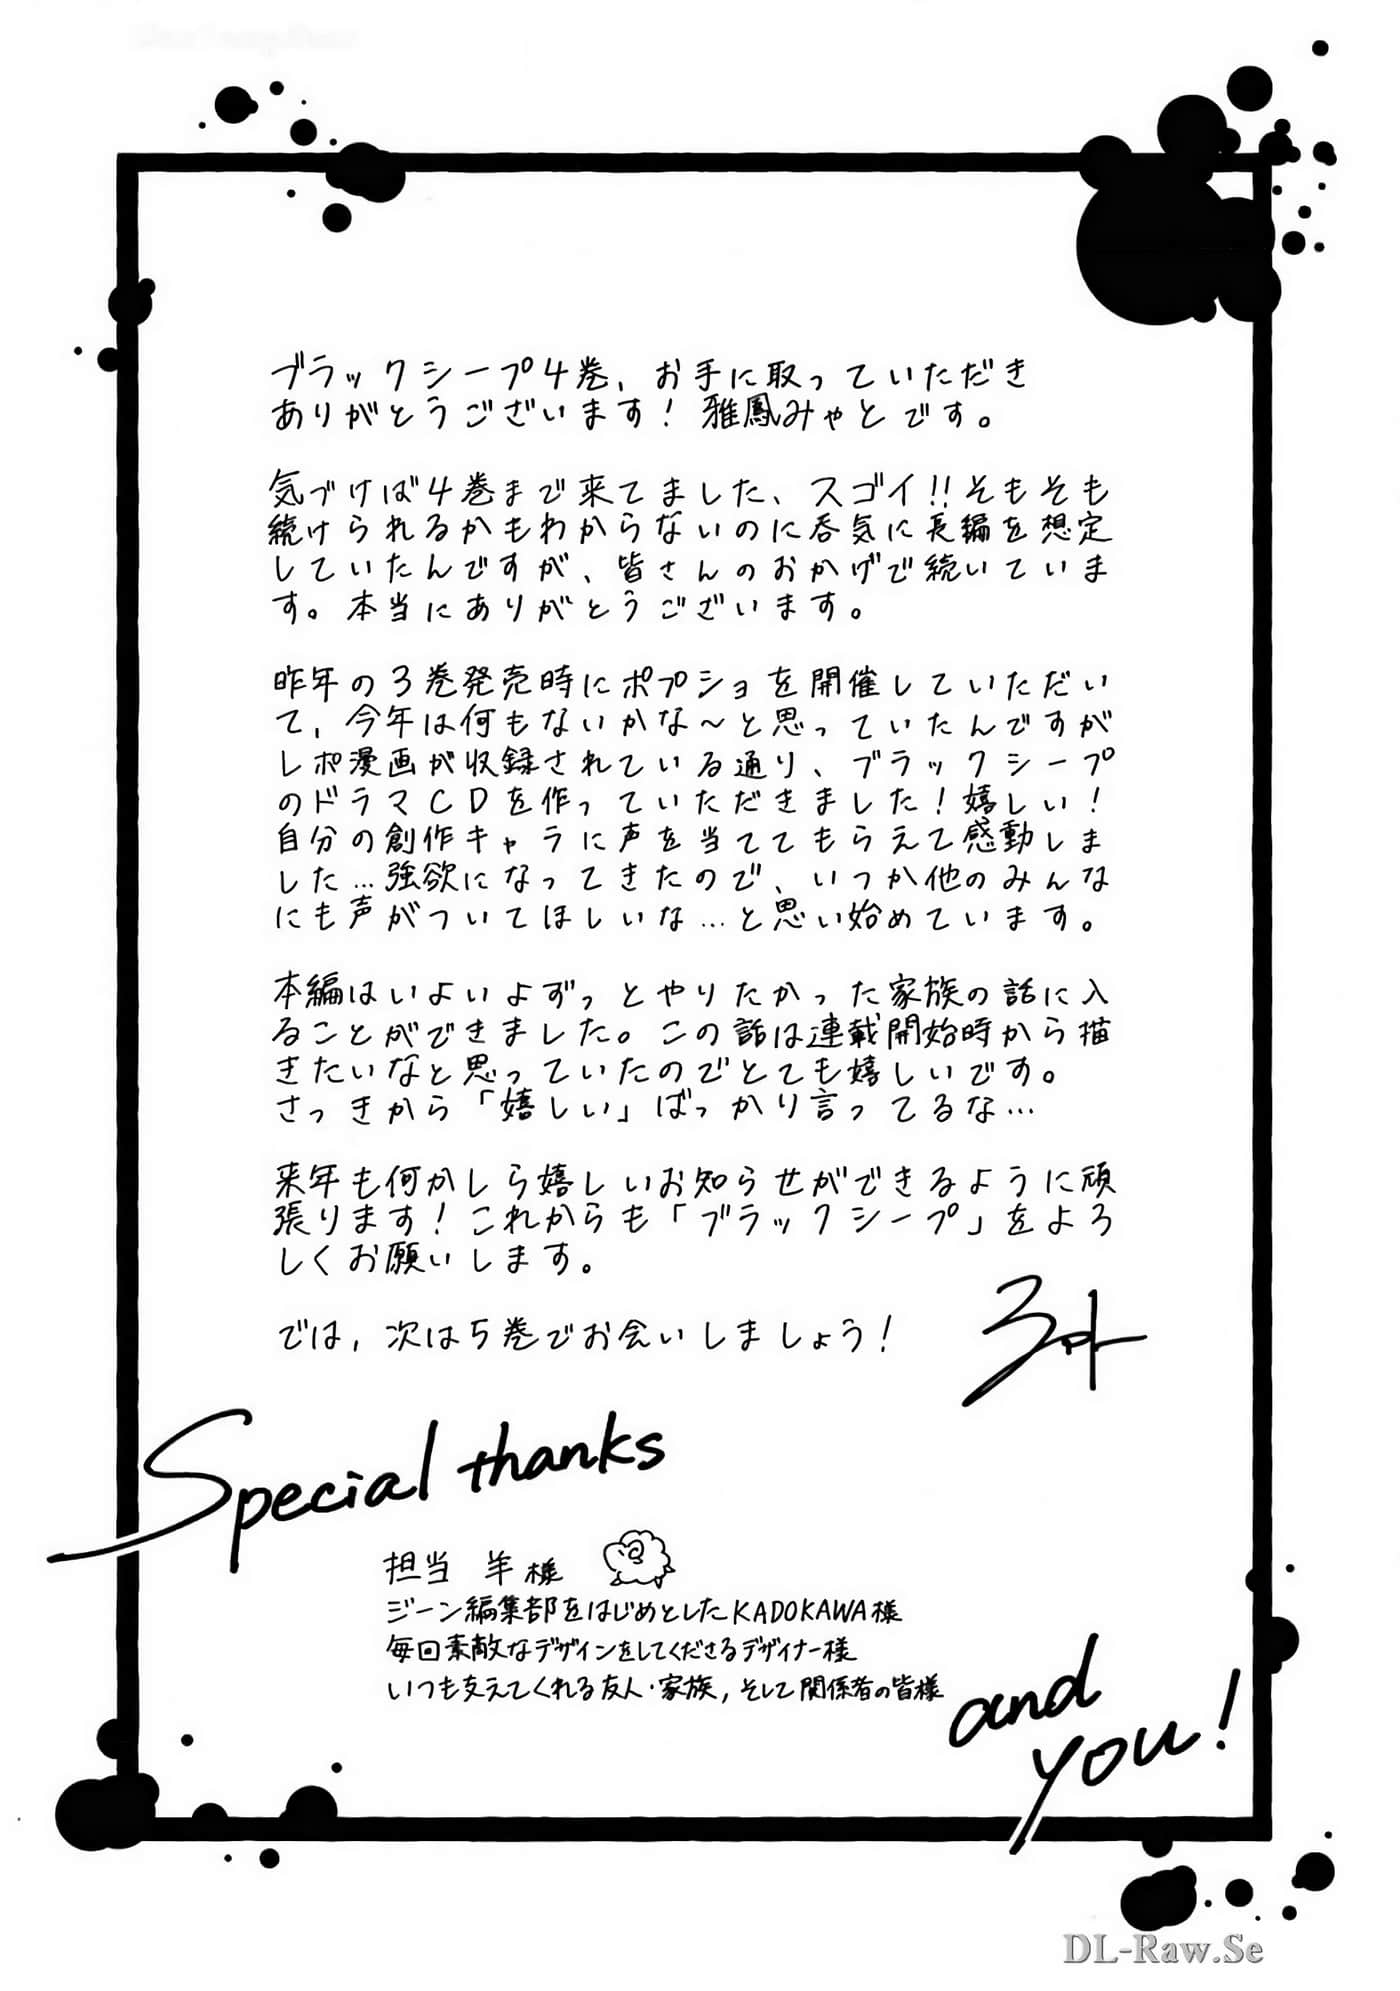 ブラックシープ4巻、お手に取っていただき
ありがとうございます！雅鳳みやとです。
気づけば4巻まで来てました、スゴイ!!そもそも
続けられるかもわからないのに呑気に長編を想定
していたんですが、皆さんのおかげで続いていま
す。本当にありがとうございます。
昨年の3巻発売時にポプショを開催していただい
て、今年は何もないかな〜と思っていたんですが
レポ漫画が収録されている通り、ブラックシープ
のドラマCDを作っていただきました！嬉しい！
自分の創作キャラに声を当ててもらえて感動しま
した…強欲になってきたので、いつか他のみんな
にも声がついてほしいな…と思い始めています。
本編はいよいよずっとやりたかった家族の話に入
ることができました。この話は連載開始時から描
きたいなと思っていたのでとても嬉しいです。
さっきから「嬉しい」ばっかり言ってるな…
来年も何かしら嬉しいお知らせができるように頑
張ります！これからも「ブラックシープ」をよろ
しくお願いします。
では、次は5巻でお会いしましょう！
Special thanks
担当 羊様
ジーン編集部をはじめとしたKADOKAWA様
毎回素敵なデザインをしてくださるデザイナー様
いつも支えてくれる友人・家族，そして関係者の皆様
and
you!
DL-Raw.Se